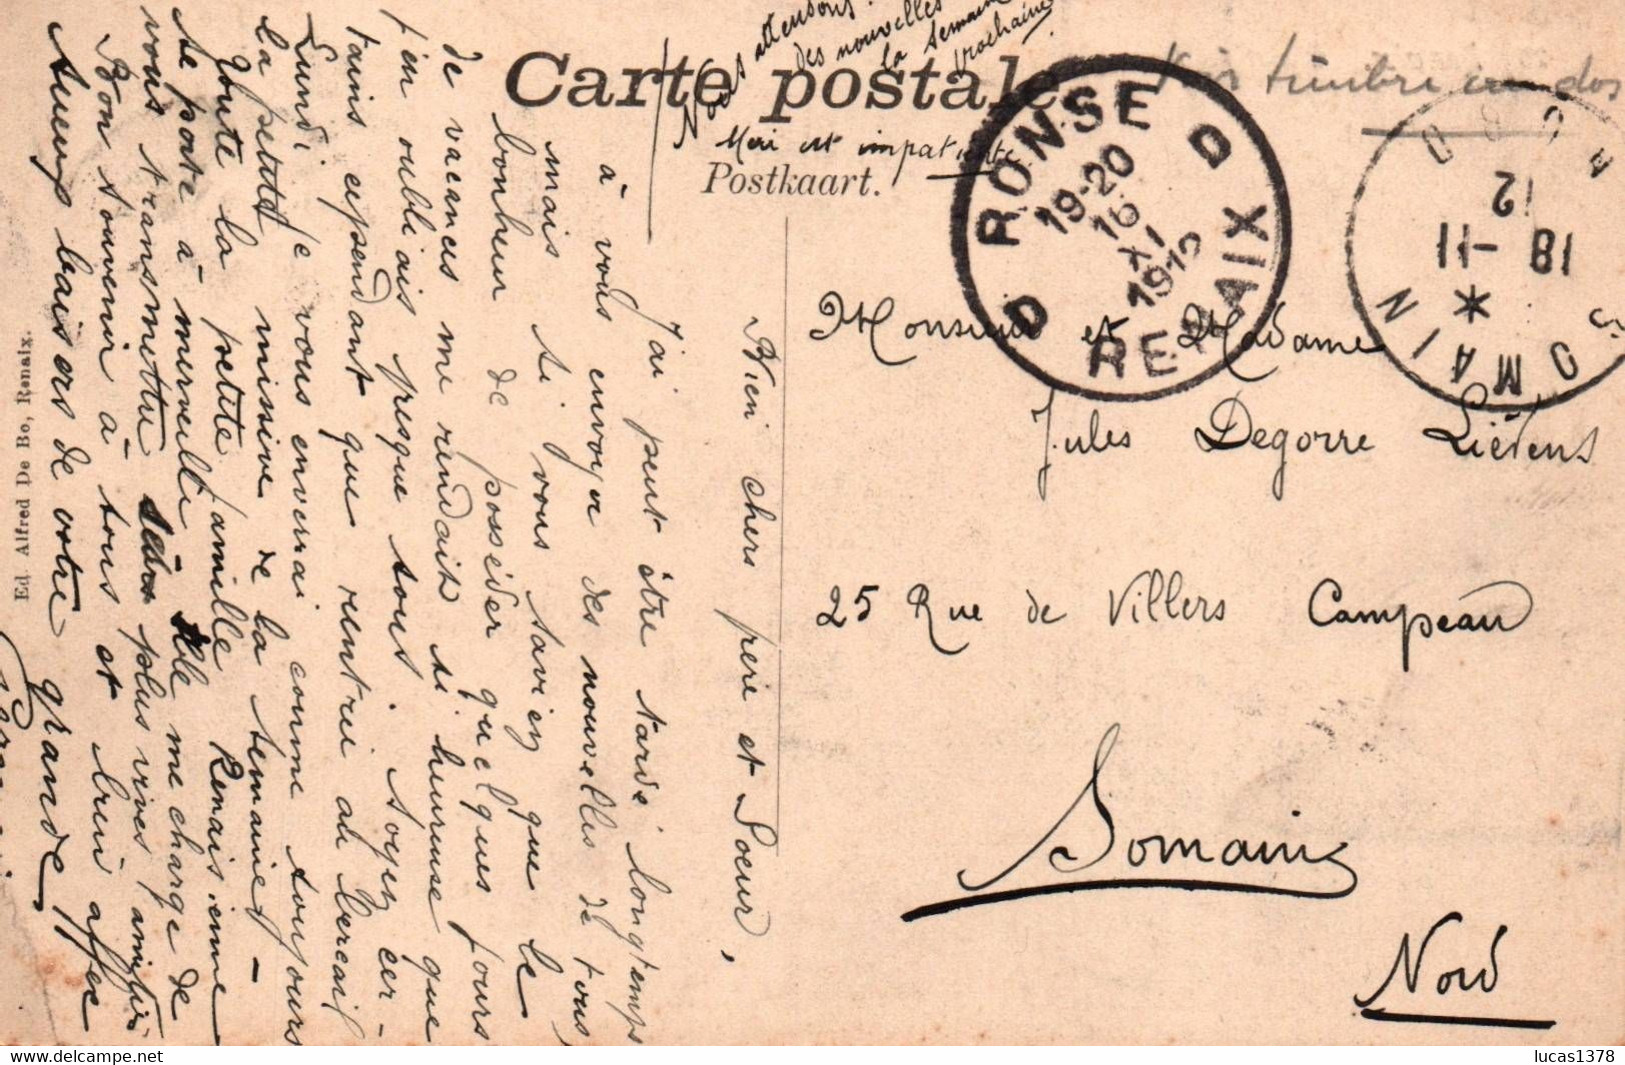 Carte postale
Postkaart.
Voir timbre au dos
Nous attendons
des nouvelles
la semaine
prochaine.
Meri est impatiente
RONSE
D D
19-20
16
XI
191
RENAIX
SOMAIN
NORD
18 - 11
12
*
Monsieur et Madame
Jules Degorre Liévens
25 Rue de Villers Campeau
Somain
Nord
Bien chers frère et Soeur,
J'ai peut être tardé longtemps
à vous envoyer des nouvelles de tous
mais si vous saviez que le
bonheur de posséder quelques jours
de vacances me rendait si heureuse que
j'en oubliais presque tous. Soyez cer-
tains cependant que rentrée au bercail
Lundi je vous enverrai comme toujours
la petite missive de la semaine -
Toute la petite famille Renaisienne
se porte à merveille. Elle me charge de
vous transmettre ses plus vives amitiés
Bon souvenir à tous et bien affec
tueux baisers de votre grande
Ed. Alfred De Bo, Renaix.
lucas1378